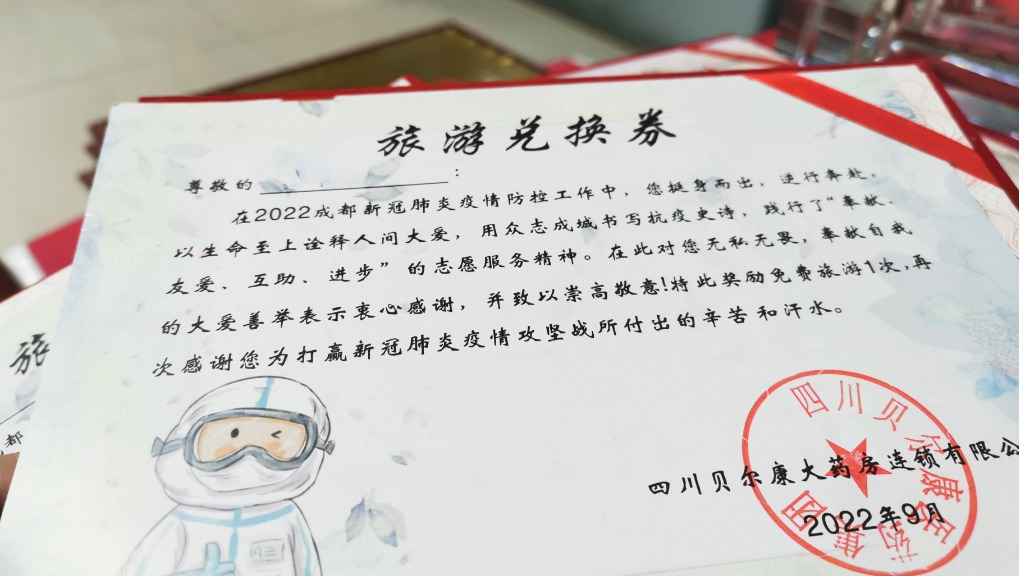 旅游兑换券
尊敬的 ：
在2022成都新冠肺炎疫情防控工作中，您挺身而出，逆行奔赴，
以生命至上诠释人间大爱，用众志成城书写抗疫史诗，践行了“奉献、
友爱、互助、进步”的志愿服务精神。在此对您无私无畏，奉献自我
的大爱善举表示衷心感谢，并致以崇高敬意!特此奖励免费旅游1次,再
次感谢您为打赢新冠肺炎疫情攻坚战所付出的辛苦和汗水。
四川贝尔康医药集团
四川贝尔康大药房连锁有限公
2022年9月
旅
都